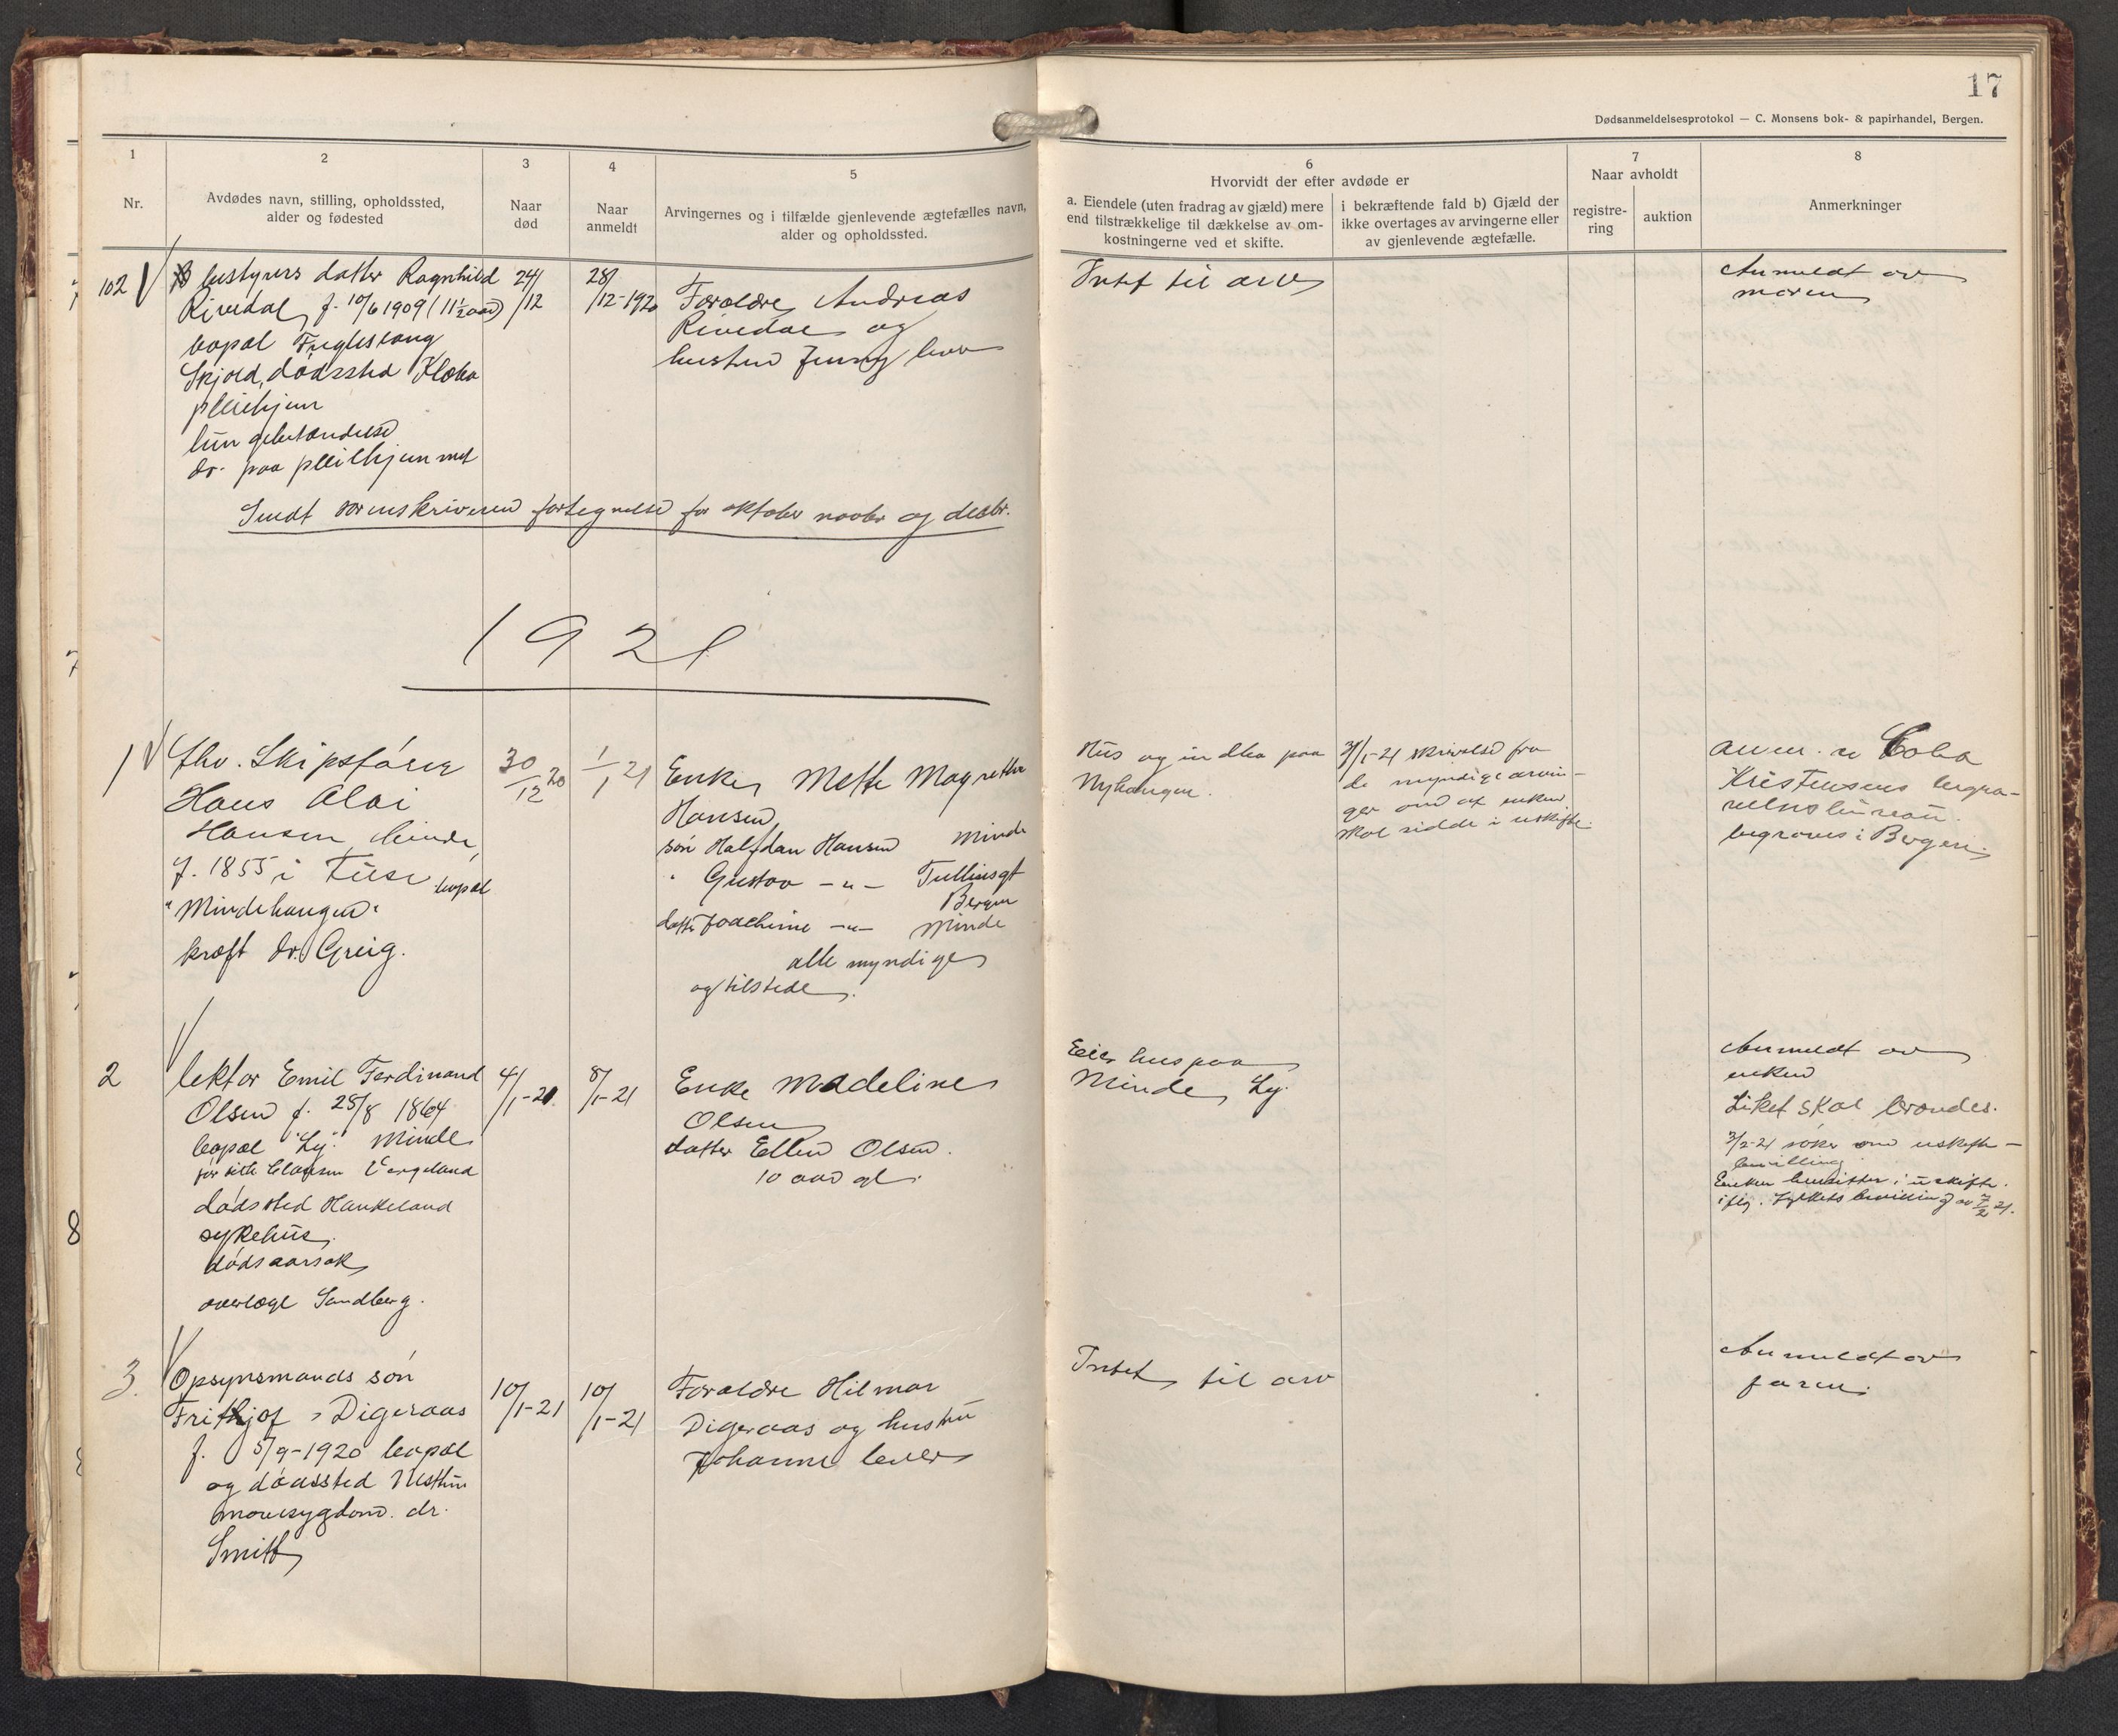 17
Dødsanmeldelsesprotokol — C. Monsens bok- & papirhandel, Bergen.
1
2
3
4
5
6
7
8
Nr.
Avdødes navn, stilling, opholdssted,
alder og fødested
Naar
død
Naar
anmeldt
Arvingernes og i tilfælde gjenlevende ægtefælles navn,
alder og opholdssted.
Hvorvidt der efter avdøde er
a. Eiendele (uten fradrag av gjæld) mere
end tilstrækkelige til dækkelse av om-
kostningerne ved et skifte.
i bekræftende fald b) Gjæld der
ikke overtages av arvingerne eller
av gjenlevende ægtefælle.
Naar avholdt
registre-
ring
auktion
Anmerkninger
102
bestyrers datter Ragnhild
Rivedal, f. 10/6 1909 (11½ aar)
bopæl Fuglesang
Skjold, dødssted
pleiehjem
lungebetændelse
dr. paa pleiehjemmet
24/12
28/12-1920
Forældre, Andreas
Rivedal og
hustru Jenny lever
Intet til arv
Anmeldt av
moren
Sendt sorenskriveren fortegnelse for oktober novbr og desbr.
1921
1
fhv. Skipsfører
Hans Olai
Hansen, Minde,
f. 1855 i Fuse bopæl
"Mindehaugen"
kræft dr. Greig.
30/12 20
1/1 21
Enke, Mette Magrethe
Hansen,
søn Halfdan Hansen Minde
" Gustav -"- Tullinsgt
Bergen
datter Joachime -"- Minde
alle myndige
og tilstede.
Hus og indbo paa
Nyhaugen.
31/1-21 skrivelse fra
de myndige arvin-
ger om at enken
skal sidde i uskifte.
anm. av
Kristensens begra-
velsesbureau.
begraves i Bergen.
2
lektor Emil Ferdinand
Olsen f. 25/8 1864
bopæl "Ly" Minde
dødssted Haukeland
sykehus,
dødsaarsak,
overlæge Sandberg.
4/1-21
8/1-21
Enke Madeline
Olsen
datter Ellen Olsen.
10 aar gl.
Eier hus paa
Minde, Ly.
Anmeldt av
enken
Liket skal brændes.
3/2-21 søker om uskifte-
bevilling
Enken hensitter i uskifte.
iflg. Fylkets bevilling av 7/2 21.
3.
Opsynsmands søn
Frithjof Digeraas
f. 5/9-1920 bopæl
og dødssted Nesttun
mavesygdom. dr.
Smitt
10/1-21
10/1-21
Forældre Hilmar
Digeraas og hustru
Johanne lever
Intet til arv
Anmeldt av
faren.